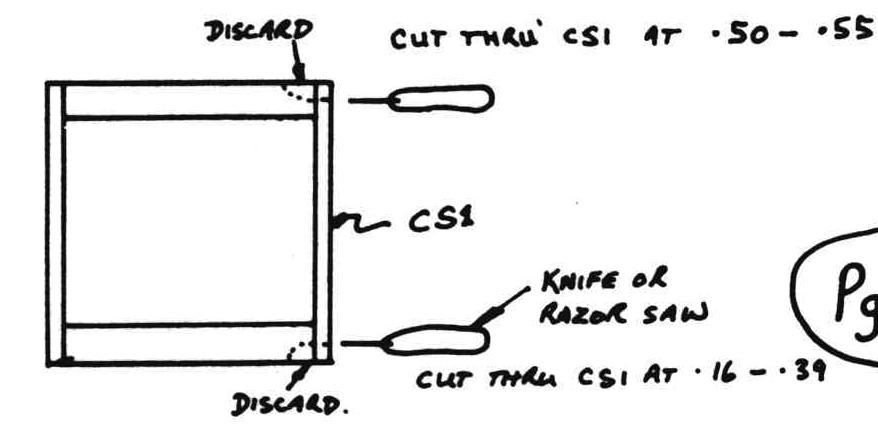 DISCARD
CUT THRU' CS1 AT .50 - .55
CS1
KNIFE OR
RAZOR SAW
Pg
CUT THRU CS1 AT .16 - .39
DISCARD.